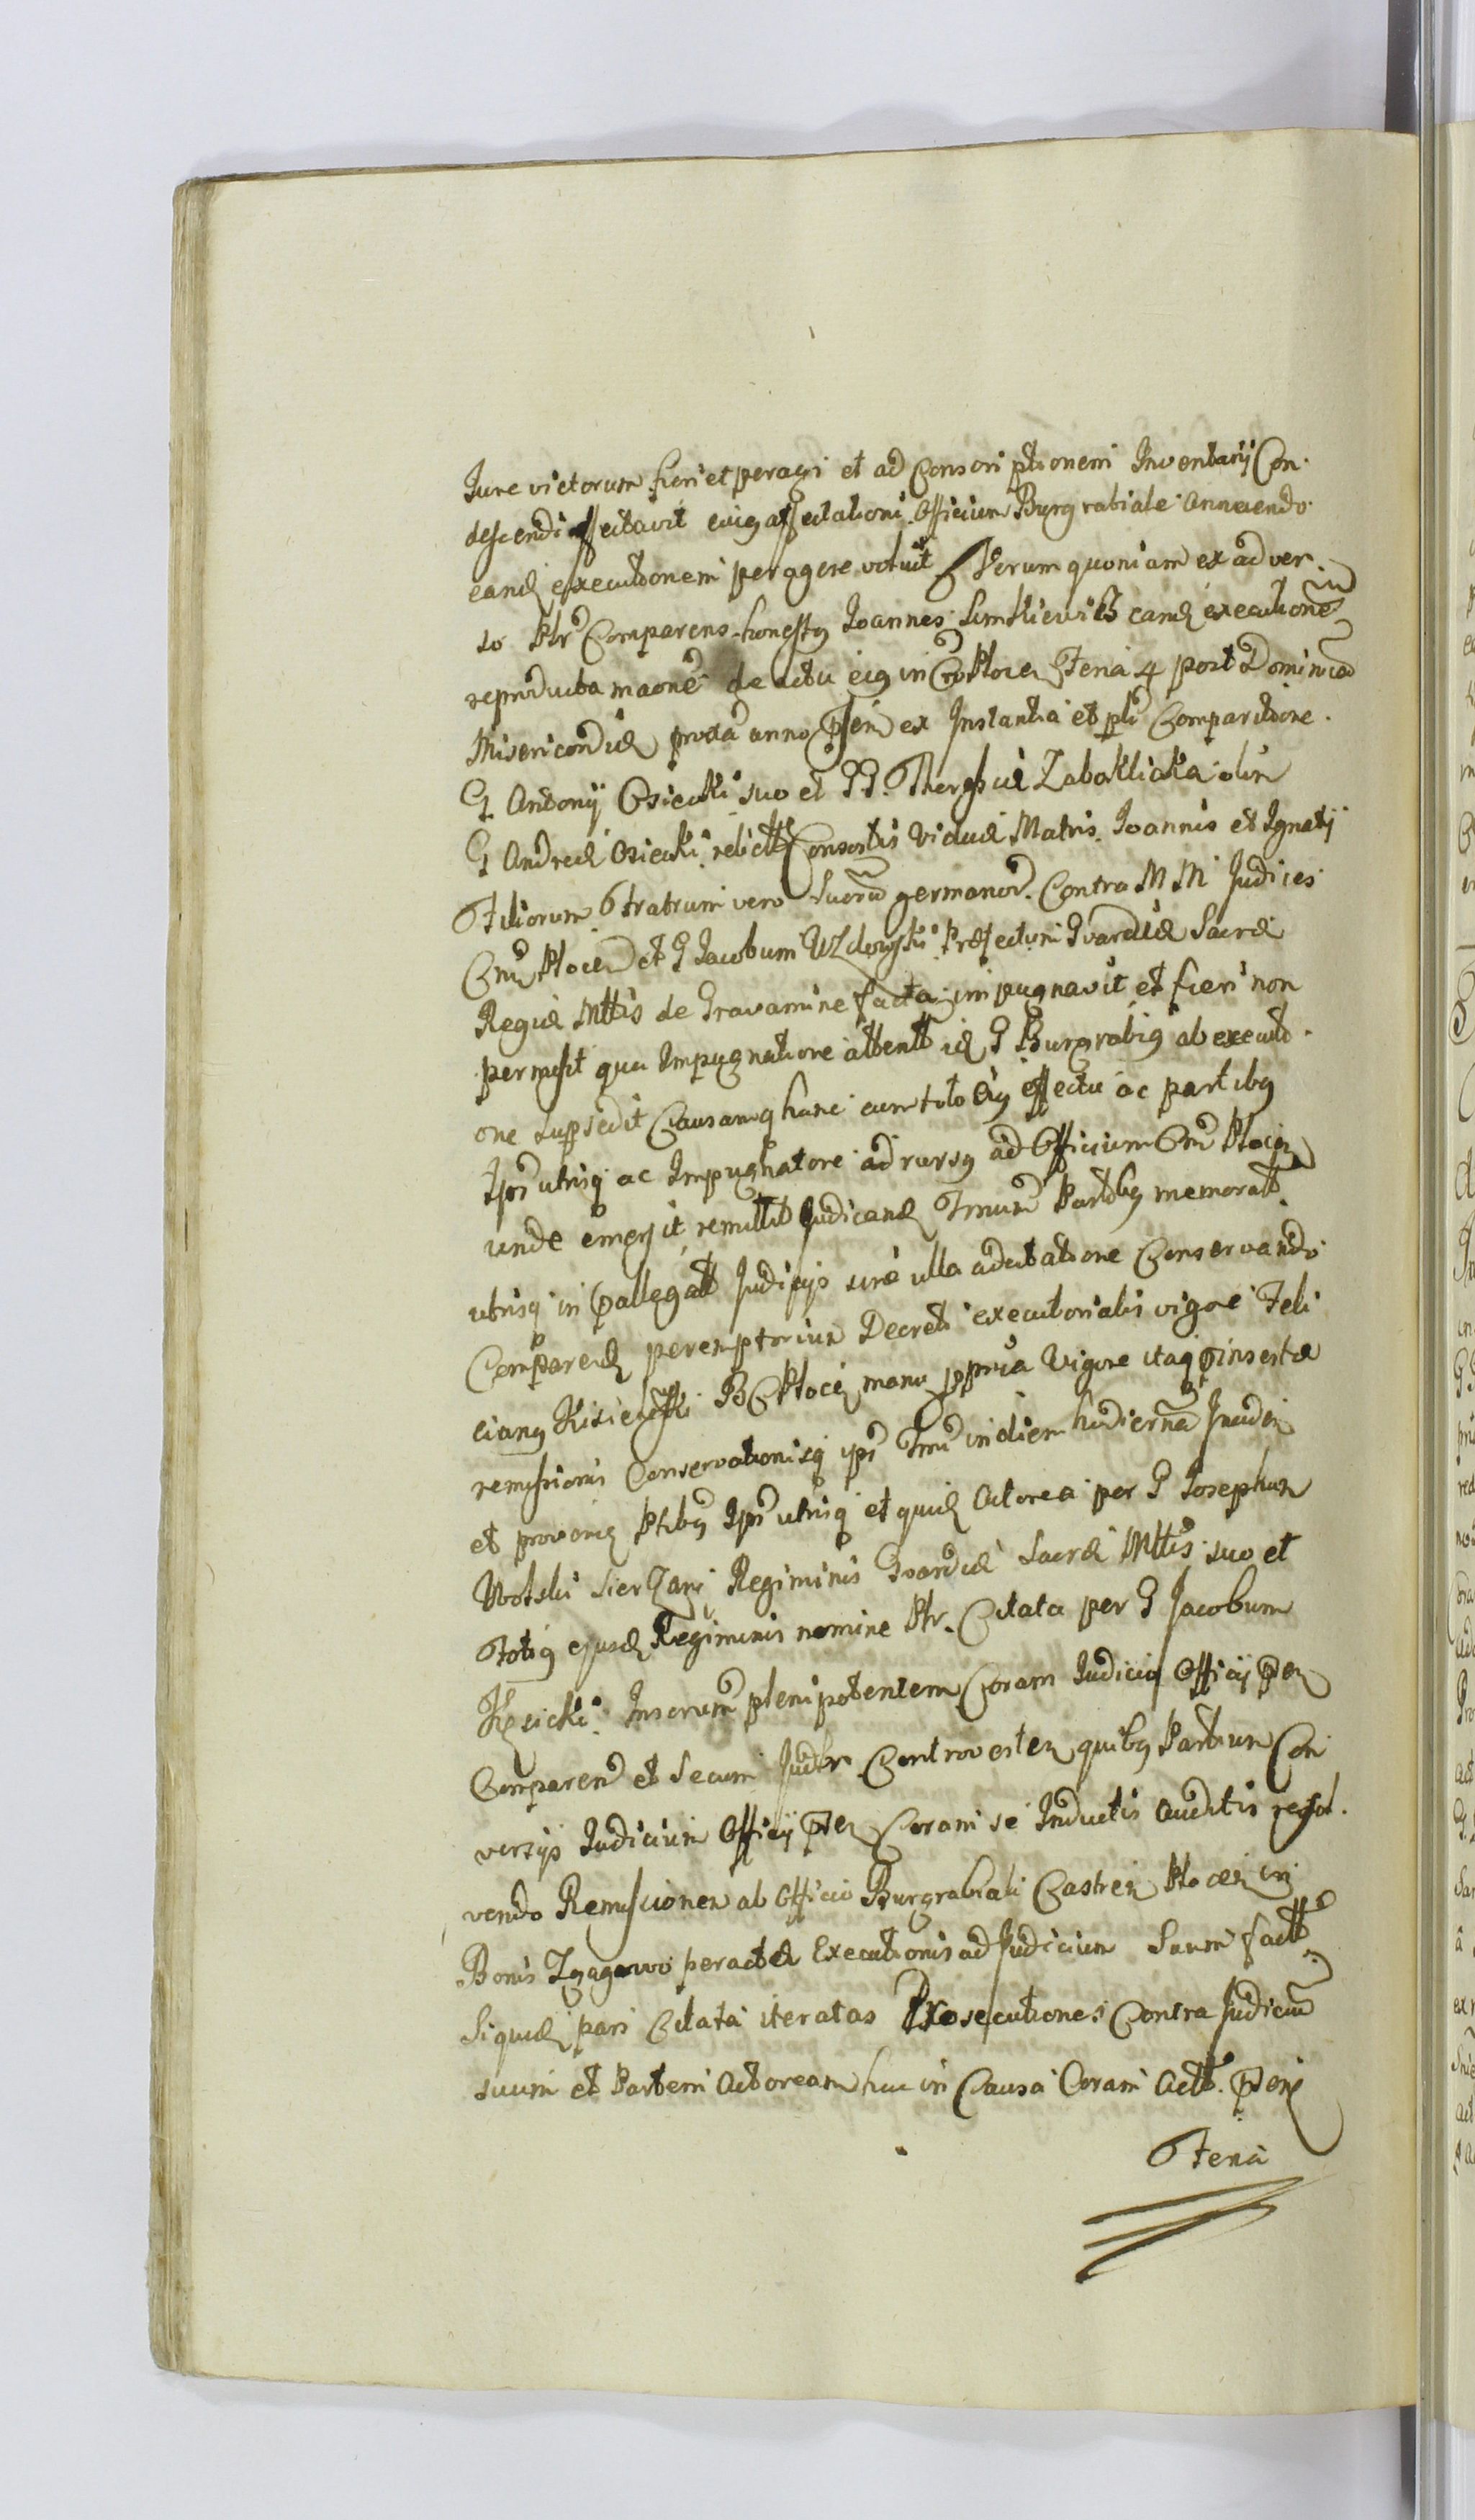 Jure victorum fieri et peragi et ad Conscriptionem Inventarij Con
descendi affectavit cuiq affectationi Officium Burgrabiale annuendo
eand executionem peragere voluit Verum quoniam ex adver
so Ptr Comparens honestq Joannes eand execution
reproducta de actu eiq in Ploce Feria 4 post Dominica
Misericordiæ proxa anno ex Instantia et pli Comparitione
G Antonij Osiecki suo et GG. Zaboklicka olim
G Andreæ Osiecki relictæ Consortis Viduæ Matris Joannis et Ignatij
Filiorum Fratrum vero Suoru germanor Contra M M Judices
Plocen et G Jacobum Præfectum Gvardiæ Sacræ
Regiæ Mttis de Gravamine facta impugnavit et fieri non
permisit qua Impugnatione attent id G Burgrabiq ab executi
one supsedit Causamq hanc cum toto eiq effectu ac partibq
Ips utrisq ac Impugnatore ad rursq ad Officium Plocen
unde emersit remittit Judicand Tmum Partibq memoratt
utrisq in pallegatt Judicijs sine ulla adcitatione Conservando
Comparend peremptorium Decreti executorialis vigore Feli
cianq BCPlocen manu ppria Vigore itaq pinsertæ
remissionis Conservationisq ips Tmi in diem hodierna Inciden
et provenien Ptibq Ips utrisq et quid Actorea per G Josephum
Wolski Sierzant Regiminis Gvardiæ Sacræ Mttis suo et
Totiq ejusd Regiminis nomine Ptr. Citata per G Jacobum
Kęsicki plenipotentem Coram Judicio Officij pn
Comparen et Secum Judtr Controverten quibq Partium Con
versijs Judicium Officij pn Coram se Inductis auditis resol
vendo Remissionem ab Officio Burgrabiali Castren Plocen in
Bonis peractæ Executionis ad Judicium Suum fact
Siquid pars Citata iteratas Prosecutiones Contra Judiciu
suum et Partem Actoream hac in Causa Coram Actt.
Feria